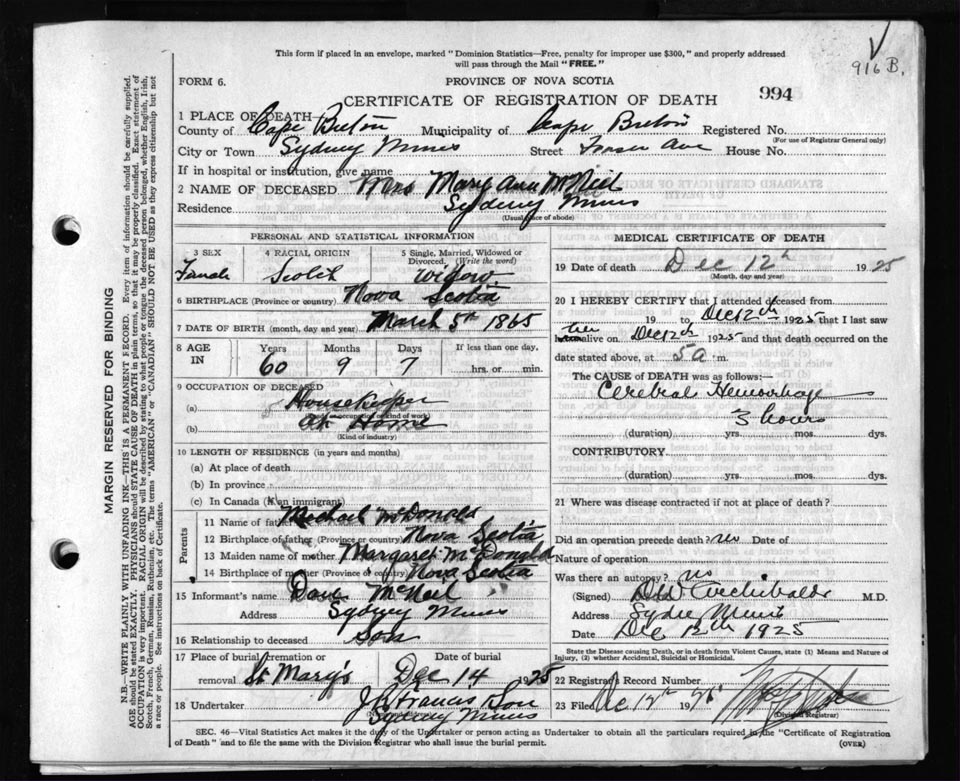 This form if placed in an envelope, marked "Dominion Statistics—Free, penalty for improper use $300," and properly addressed
will pass through the Mail "FREE."
916 B.
FORM 6.
PROVINCE OF NOVA SCOTIA
994
CERTIFICATE OF REGISTRATION OF DEATH
1 PLACE OF DEATH
County of Cape Breton Municipality of Cape Breton Registered No.
(For use of Registrar General only)
City or Town Sydney Mines Street Fraser Ave House No.
If in hospital or institution, give name
2 NAME OF DECEASED Mrs Mary Ann McNeil
Residence Sydney Mines
(Usual place of abode)
PERSONAL AND STATISTICAL INFORMATION
3 SEX 4 RACIAL ORIGIN 5 Single, Married, Widowed or
Divorced. (Write the word)
Female Scotch widow
6 BIRTHPLACE (Province or country) Nova Scotia
7 DATE OF BIRTH (month, day and year) March 5th 1865
8 AGE IN Years Months Days If less than one day,
60 9 7 hrs. or min.
9 OCCUPATION OF DECEASED
(a) Housekeeper
(b) At Home
(Kind of industry)
10 LENGTH OF RESIDENCE (in years and months)
(a) At place of death
(b) In province
(c) In Canada (if an immigrant)
Parents
11 Name of father Michael McDonald
12 Birthplace of father (Province or country) Nova Scotia
13 Maiden name of mother Margaret McDonald
14 Birthplace of mother (Province or country) Nova Scotia
15 Informant's name McNeil
Address Sydney Mines
16 Relationship to deceased Son
17 Place of burial, cremation or Date of burial
removal St Mary's Dec 14 1925
18 Undertaker J. Francis Son
Sydney Mines
MEDICAL CERTIFICATE OF DEATH
19 Date of death Dec 12th 1925
(Month, day and year)
20 I HEREBY CERTIFY that I attended deceased from
19 to Dec 12th 1925 that I last saw
her alive on Dec 12th 1925 and that death occurred on the
date stated above, at 5 a m.
The CAUSE of DEATH was as follows:—
Cerebral Hemorrhage
3 hours
(duration) yrs. mos. dys.
CONTRIBUTORY.
(duration) yrs. mos. dys.
21 Where was disease contracted if not at place of death?
Did an operation precede death? no Date of
Nature of operation
Was there an autopsy? no
(Signed) Archibald M.D.
Address Sydney Mines
Date Dec 12th 1925
State the Disease causing Death, or in death from Violent Causes, state (1) Means and Nature of
Injury, (2) whether Accidental, Suicidal or Homicidal.
22 Registrar's Record Number
23 Filed Dec 12th 1925
(Division Registrar)
SEC. 46—Vital Statistics Act makes it the duty of the Undertaker or person acting as Undertaker to obtain all the particulars required in the "Certificate of Registration
of Death" and to file the same with the Division Registrar who shall issue the burial permit.
(OVER)
MARGIN RESERVED FOR BINDING
N.B.—WRITE PLAINLY WITH UNFADING INK—THIS IS A PERMANENT RECORD. Every item of information should be carefully supplied.
AGE should be stated EXACTLY. PHYSICIANS should STATE CAUSE OF DEATH in plain terms, so that it may be properly classified. Exact statement of
OCCUPATION is very important. RACIAL ORIGIN will be described by stating to what people or tongue the deceased person belonged, whether English, Irish,
Scotch, French, German, Russian, Ruthenian, etc. The terms "AMERICAN" or "CANADIAN" SHOULD NOT BE USED as they express citizenship but not
a race or people. See instructions on back of Certificate.